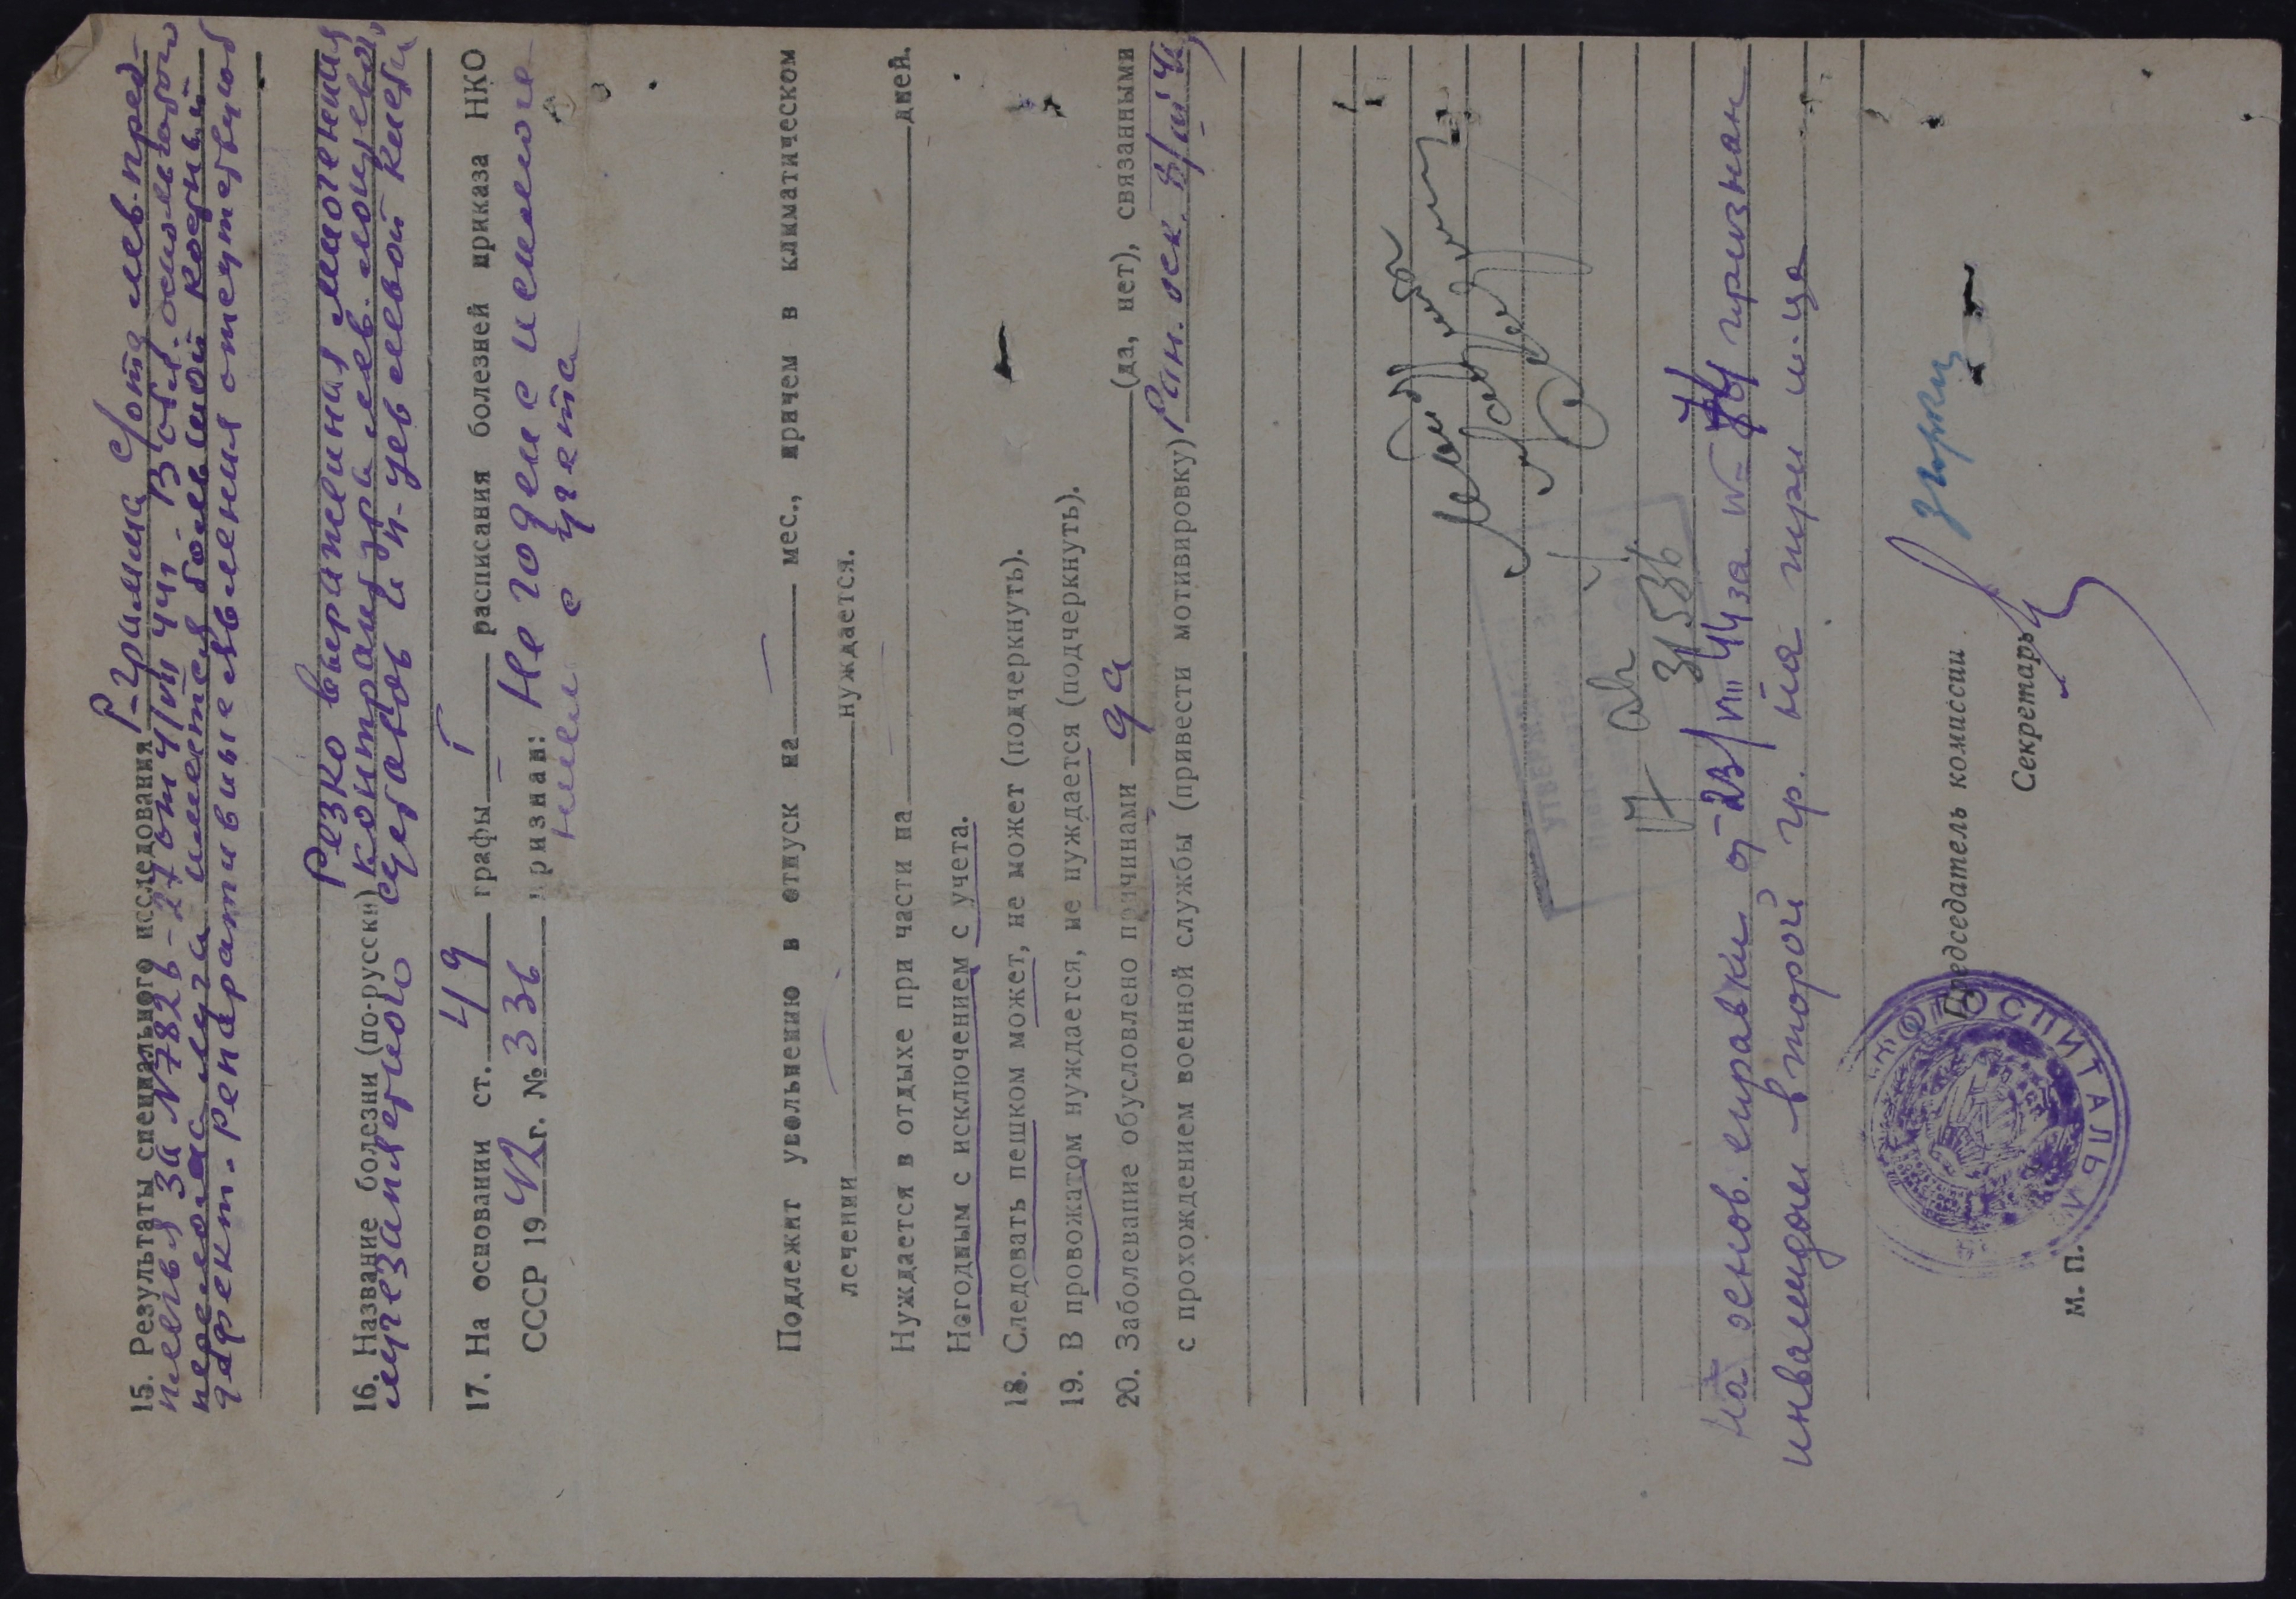 15. Результаты специального исследования Р-грамма с/отд лев. пред-
плечья за №7826-27 от 4/VIII 44г. В обл. оскольчатого
перелома с луча имеется большой костный
дефект. Репаративные явления отсутствуют
Резко выраженная миогенная
16. Название болезни (по-русски) контрактура лев.
лучезапястного суставов и п-цев левой кисти
17. На основании ст. 49 графы I расписания болезней приказа НКО
СССР 1942 г. № 336 признан: Не годен с исключе-
нием с учета
Подлежит увольнению в отпуск на мес., причем в климатическом
лечении нуждается.
Нуждается в отдыхе при части на дней.
Негодным с исключением с учета.
18. Следовать пешком может, не может (подчеркнуть).
19. В провожатом нуждается, не нуждается (подчеркнуть).
20. Заболевание обусловлено причинами да (да, нет), связанными
с прохождением военной службы (привести мотивировку) Ран. оск.
На основ. справки от 23/VIII 44 за № признан
инвалидом второй гр. на три м-ца
Председатель комиссии
Секретарь
М. П.
ГОСПИТАЛЬ